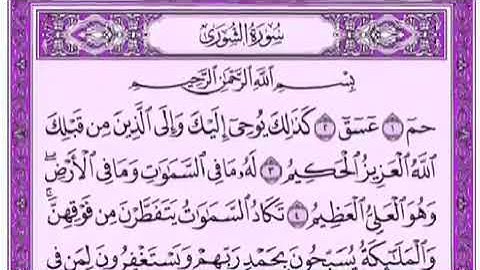 سُورَةُ الشُّورَىٰ
بِسْمِ اللَّهِ الرَّحْمَٰنِ الرَّحِيمِ
حمٓ ١ عٓسٓقٓ ٢ كَذَٰلِكَ يُوحِىٓ إِلَيْكَ وَإِلَى ٱلَّذِينَ مِن قَبْلِكَ
ٱللَّهُ ٱلْعَزِيزُ ٱلْحَكِيمُ ٣ لَهُۥ مَا فِى ٱلسَّمَٰوَٰتِ وَمَا فِى ٱلْأَرْضِ ۖ
وَهُوَ ٱلْعَلِىُّ ٱلْعَظِيمُ ٤ تَكَادُ ٱلسَّمَٰوَٰتُ يَتَفَطَّرْنَ مِن فَوْقِهِنَّ ۚ
وَٱلْمَلَٰٓئِكَةُ يُسَبِّحُونَ بِحَمْدِ رَبِّهِمْ وَيَسْتَغْفِرُونَ لِمَن فِى